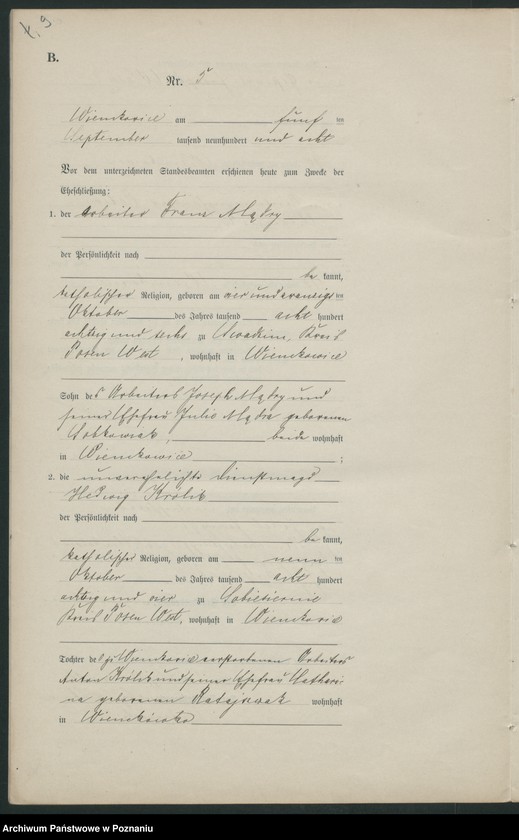 B.
Nr. 5
am fünf ten
September tausend neunhundert und acht
Vor dem unterzeichneten Standesbeamten erschienen heute zum Zwecke der
Eheschließung:
1. der Arbeiter Franz
der Persönlichkeit nach
be kannt,
katholischer Religion, geboren am vierundzwanzigsten
Oktober des Jahres tausend acht hundert
achtzig und sechs zu Kreis
Posen West, wohnhaft in Wienckowice
Sohn des Arbeiters Joseph und
seiner Ehefrau geborenen
beide wohnhaft
in Wienckowice;
2. die unverehelichte Dienstmagd
Hedwig Krolik
der Persönlichkeit nach
be kannt,
katholischer Religion, geboren am neun ten
Oktober des Jahres tausend acht hundert
achtzig und vier zu
Kreis Posen West, wohnhaft in
Tochter des zu verstorbenen Arbeiters
Anton Krolik und seiner Ehefrau Kathari
na geborenen Ratajczak wohnhaft
in
Archiwum Państwowe w Poznaniu